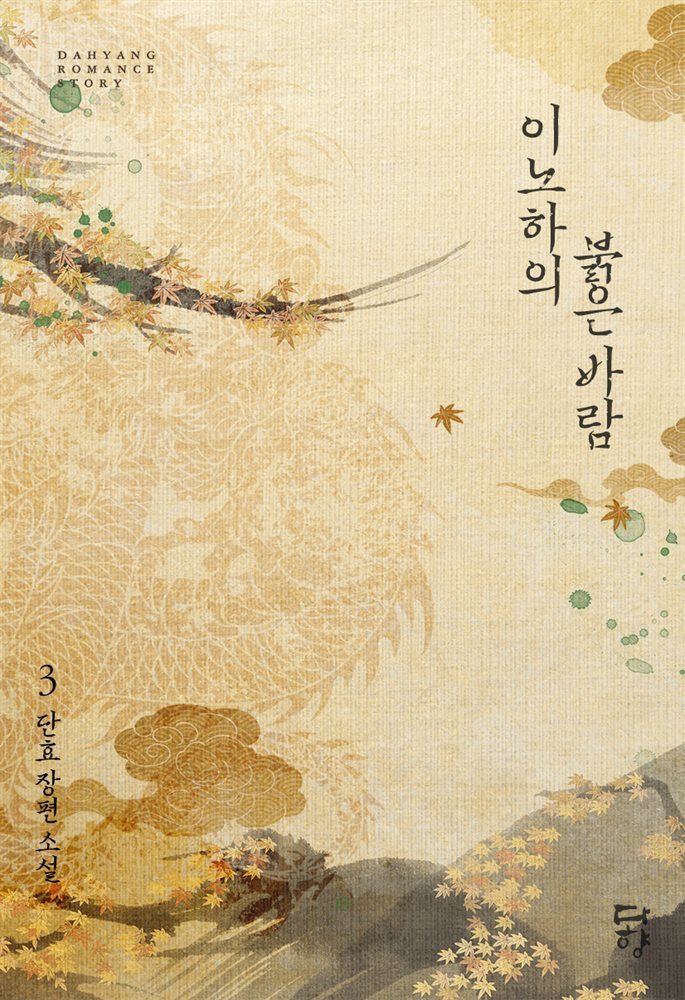 DAHYANG
ROMANCE
STORY
이노하의
붉은 바람
3 단효 장편 소설
다향